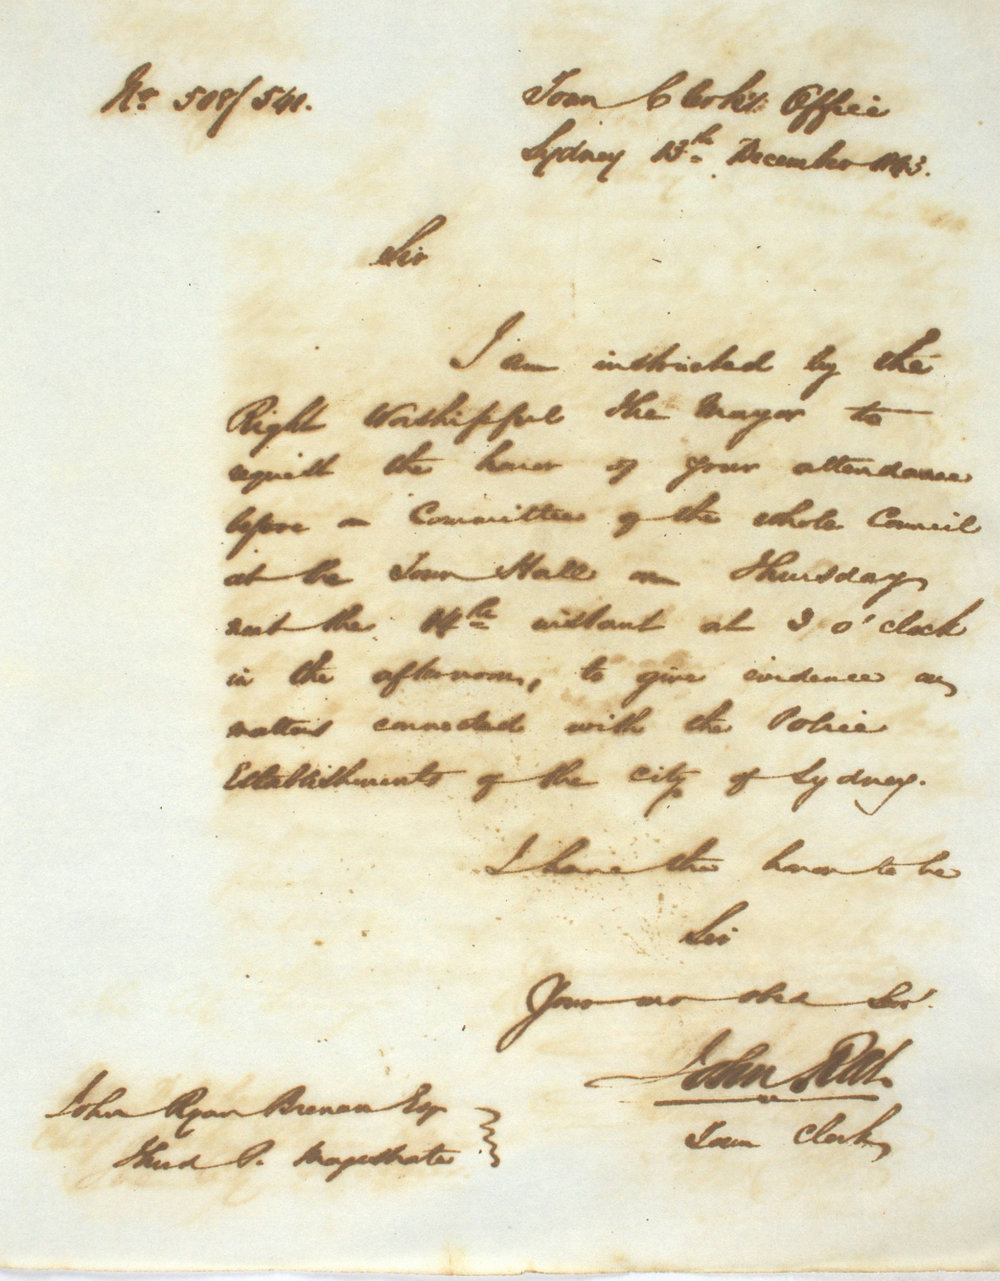 No. 508/541.
Town Clerk's Office
Sydney 13th December 1843.
Sir
I am instructed by the
Right Worshipful the Mayor to
request the honor of your attendance
before a Committee of the whole Council
at the Town Hall on Thursday
next the 14th instant at 3 o'clock
in the afternoon, to give evidence on
matters connected with the Police
Establishments of the city of Sydney.
I have the honor to be
Sir
Your mo obed Ser
John
Town Clerk
John Ryan Brenan Esq
Third P. Magistrate